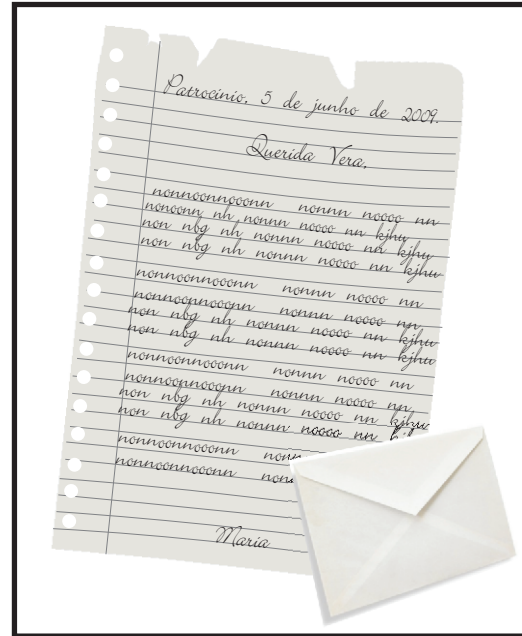 Patrocínio, 5 de junho de 2009.
Querida Vera,
nonnoonnooonn nonnn noooo nn
nonoonn nh nonnn noooo nn kjhu
non nbg nh nonnn noooo nn kjhu
non nbg nh nonnn noooo nn kjhu
nonnoonnooonn nonnn noooo nn
nonnoonnooonn nonnn noooo nn
non nbg nh nonnn noooo nn kjhu
non nbg nh nonnn noooo nn kjhu
nonnoonnooonn nonnn noooo nn
nonnoonnooonn nonnn noooo nn
non nbg nh nonnn noooo nn kjhu
non nbg nh nonnn noooo nn
nonnoonnooonn
nonnoonnooonn
Maria